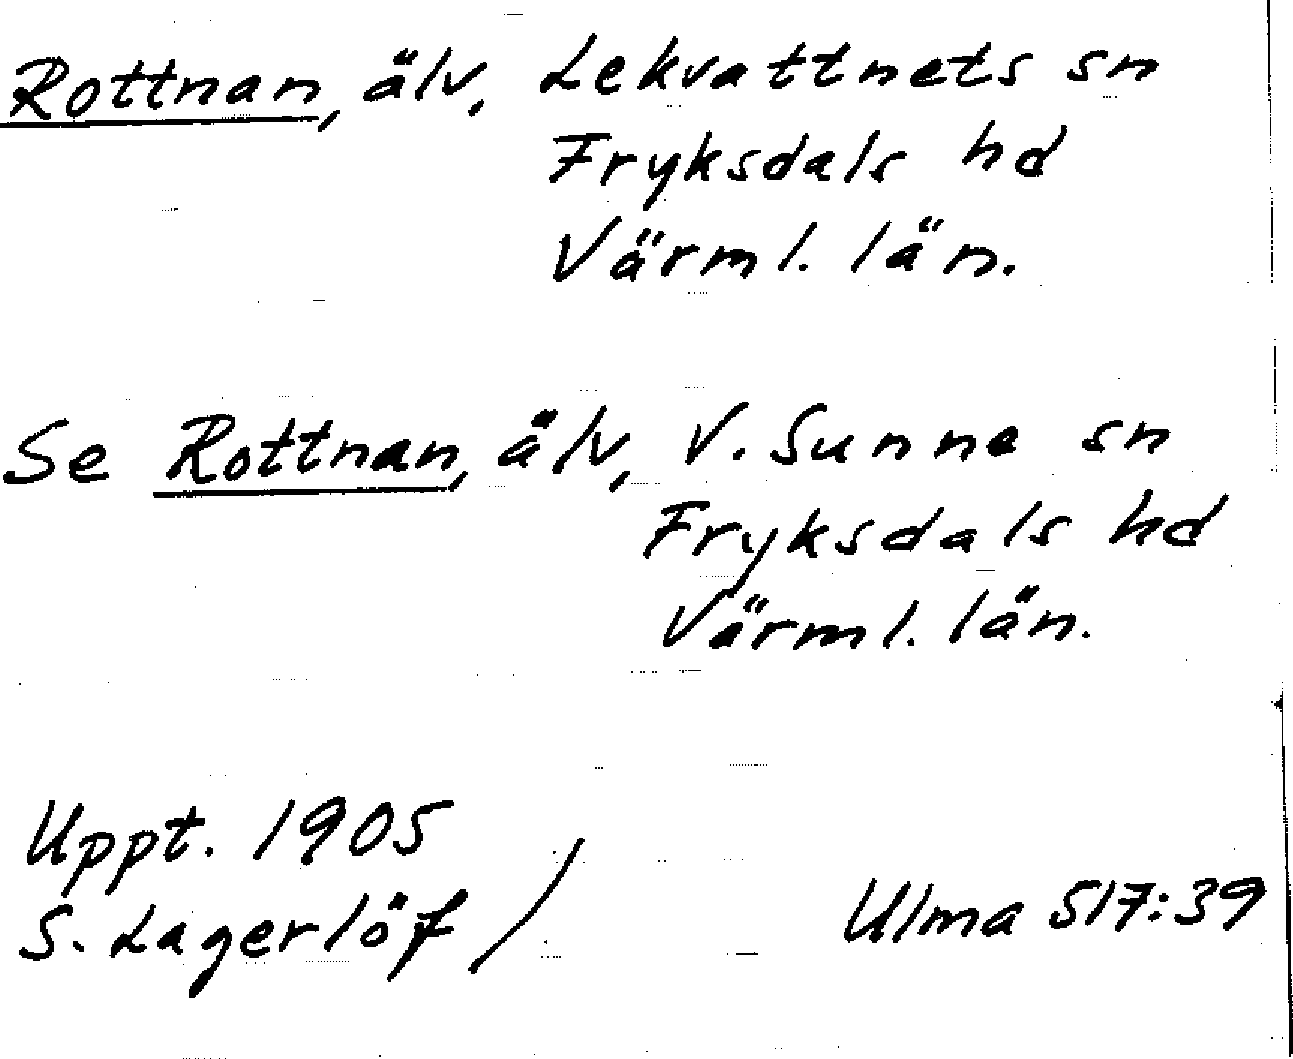 Rottnan, älv, Lekvattnets sn
Fryksdals hd
Värml. län.
Se Rottnan, älv, V. Sunne sn
Fryksdals hd
Värml. län.
Uppt. 1905
S. Lagerlöf /
Ulma 517:39